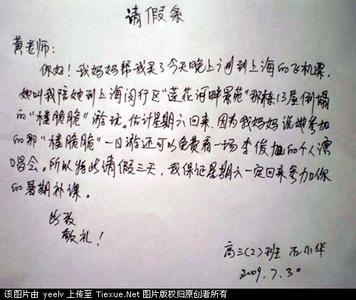 请假条
黄老师:
你好!我妈妈帮我买了今天晚上到上海的飞机票,
她叫我陪她到上海闵行区“莲花河畔景苑”那栋13层倒塌
的“楼脆脆”游玩。估计星期六回来,因为我妈妈说她参加
的那“楼脆脆”一日游还可以免费看一场李俊旭的个人演
唱会。所以特此请假三天,我保证星期六一定回来参加你
的暑期补课。
此致
敬礼!
高三(2)班 石小华
2009.7.30
该图片由 yeelv 上传至 Tiexue.Net 图片版权归原创者所有